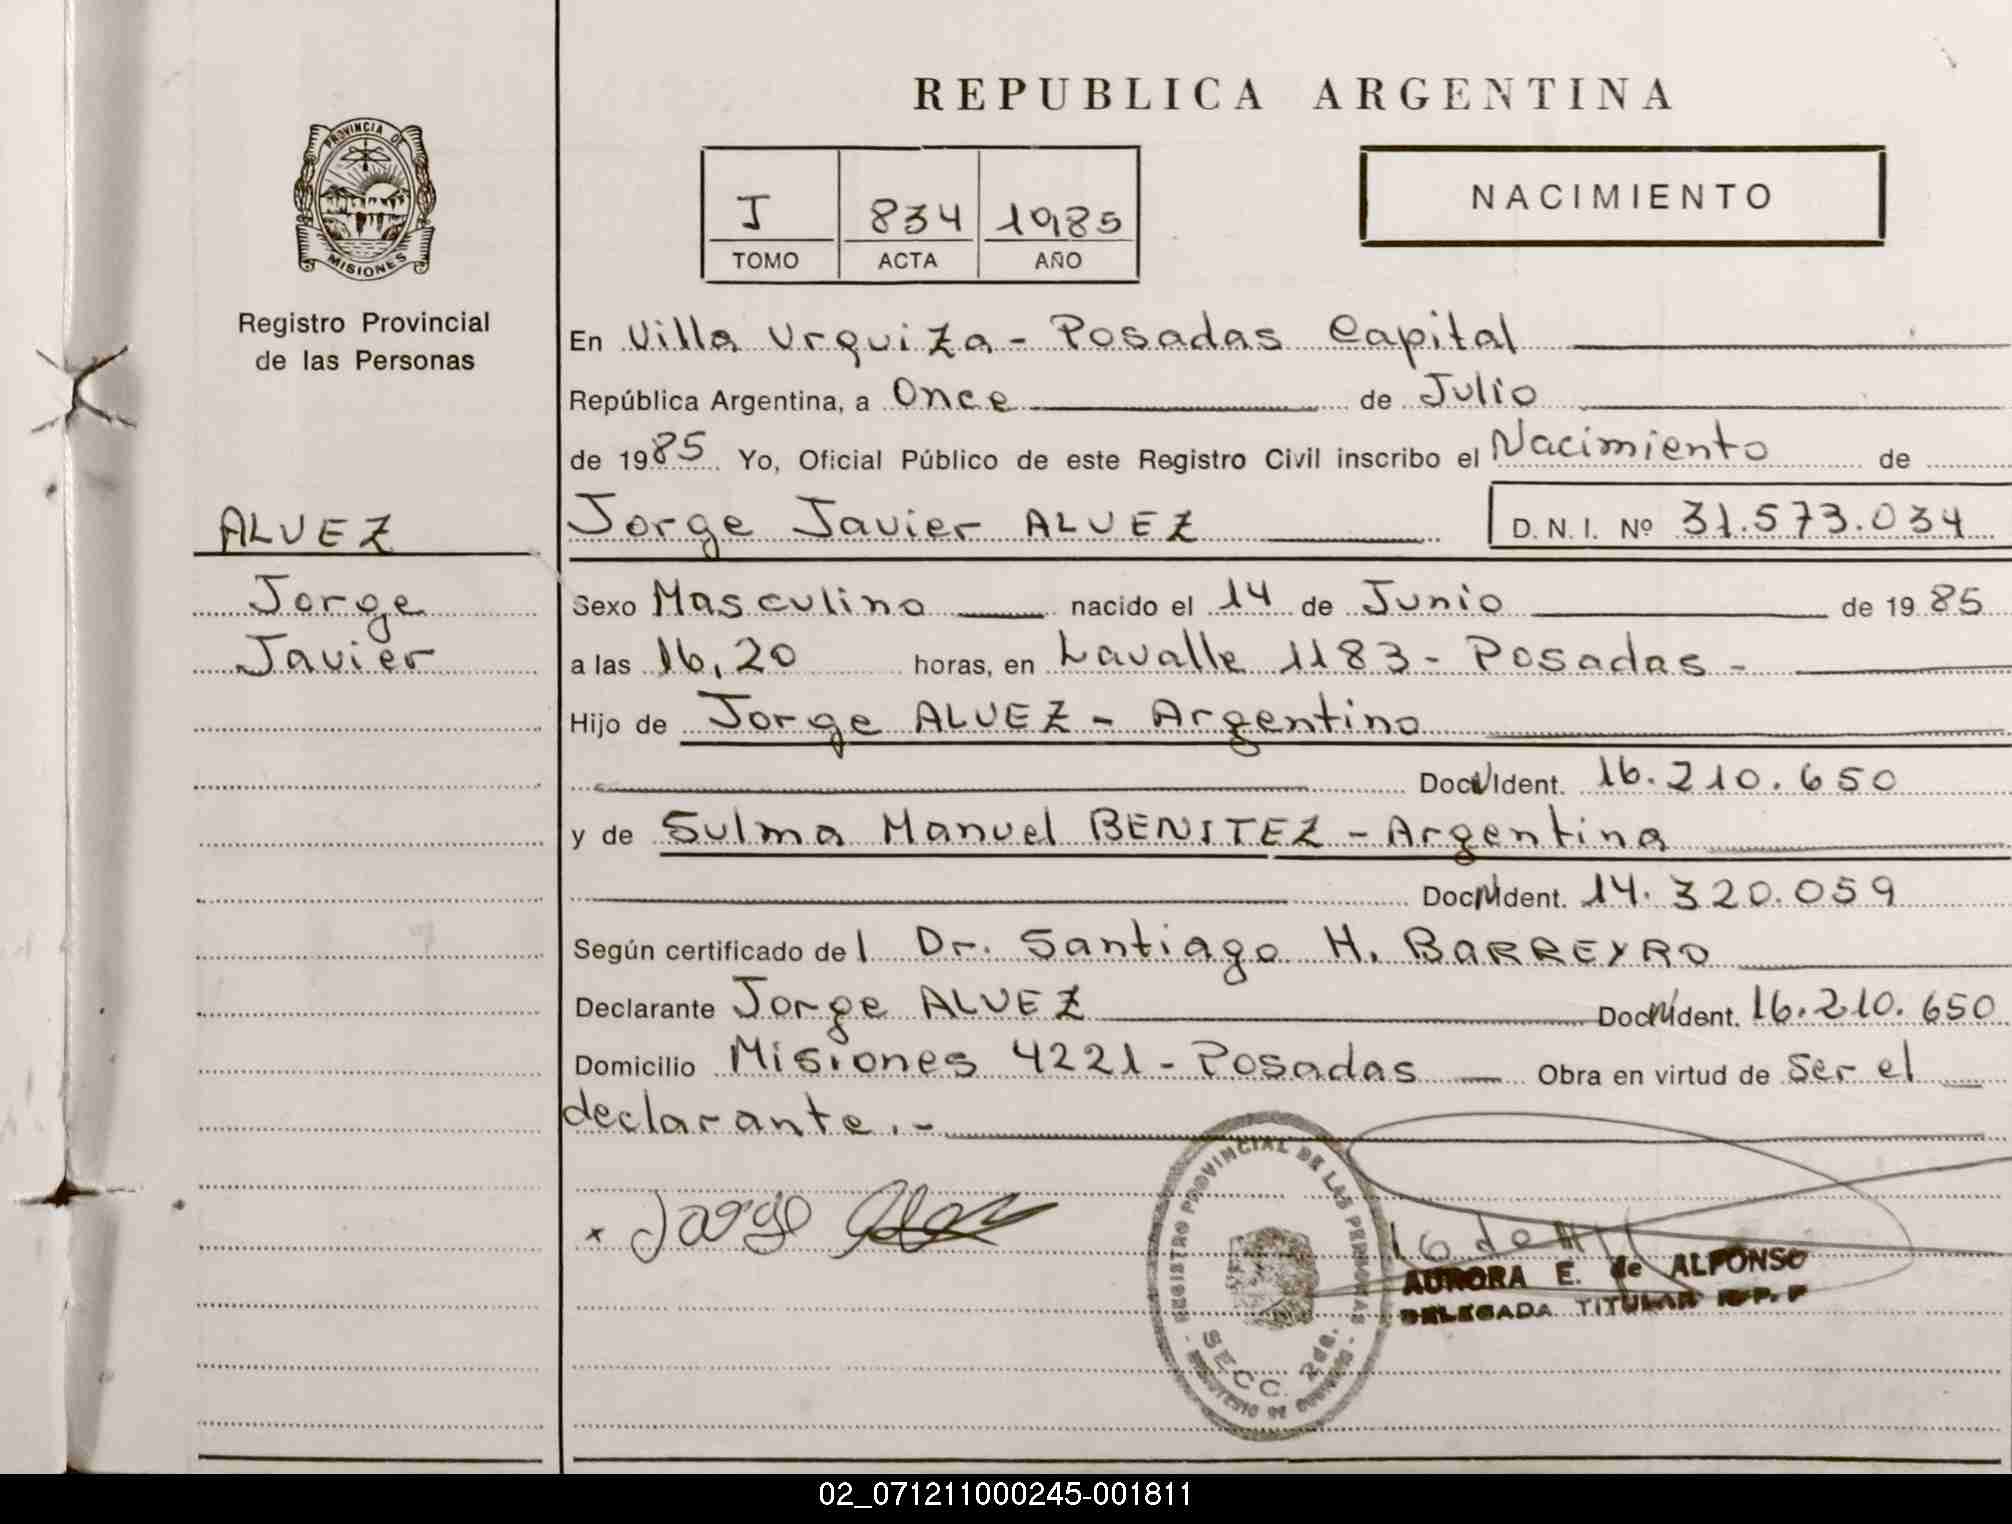 REPUBLICA ARGENTINA
PROVINCIA DE
MISIONES
Registro Provincial
de las Personas
J 834 1985
TOMO ACTA AÑO
NACIMIENTO
En Villa Urquiza - Posadas Capital
República Argentina, a Once de Julio
de 1985 Yo, Oficial Público de este Registro Civil inscribo el Nacimiento de
ALVEZ
Jorge Javier ALVEZ D. N. I. Nº 31.573.034
Jorge
Sexo Masculino nacido el 14 de Junio de 1985
Javier
a las 16,20 horas, en Lavalle 1183 - Posadas -
Hijo de Jorge ALVEZ - Argentino
Doc. Ident. 16.210.650
y de Sulma Manuel BENITEZ - Argentina
Doc. Ident. 14.320.059
Según certificado del Dr. Santiago H. BARREYRO
Declarante Jorge ALVEZ Doc. Ident. 16.210.650
Domicilio Misiones 4221 - Posadas Obra en virtud de Ser el
declarante. -
x Jorge
REGISTRO PROVINCIAL DE LAS PERSONAS
SECC. 2da.
MINISTERIO DE GOBIERNO
AURORA E. de ALFONSO
DELEGADA TITULAR R. P. P
02_071211000245-001811